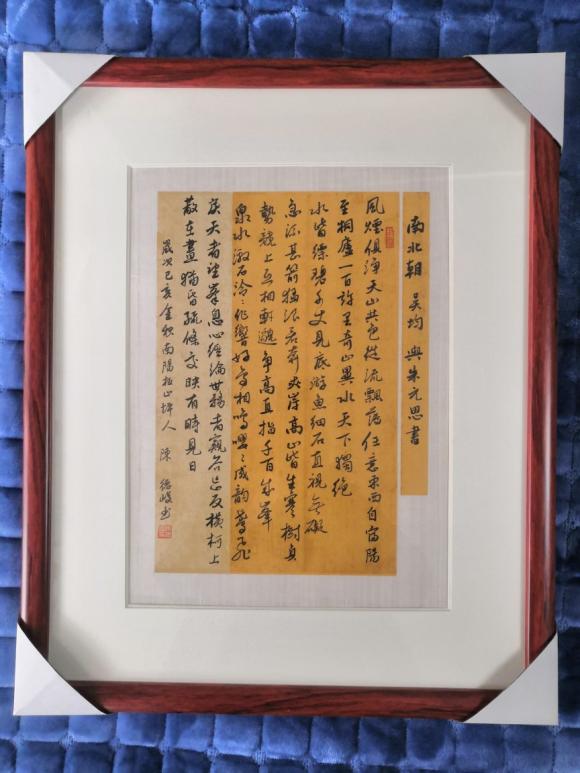 南北朝 吴均 與朱元思書
風煙俱淨天山共色從流飄蕩任意東西自富陽
至桐廬一百許里奇山異水天下獨絶
水皆縹碧千丈見底游魚細石直視無礙
急湍甚箭猛浪若奔夾岸高山皆生寒樹負
勢競上互相軒邈爭高直指千百成峯
泉水激石泠泠作響好鳥相鳴嚶嚶成韻鳶飛
戾天者望峯息心經綸世務者窺谷忘反橫柯上
蔽在晝猶昏疏條交映有時見日
歲次己亥金秋南陽
人 陳